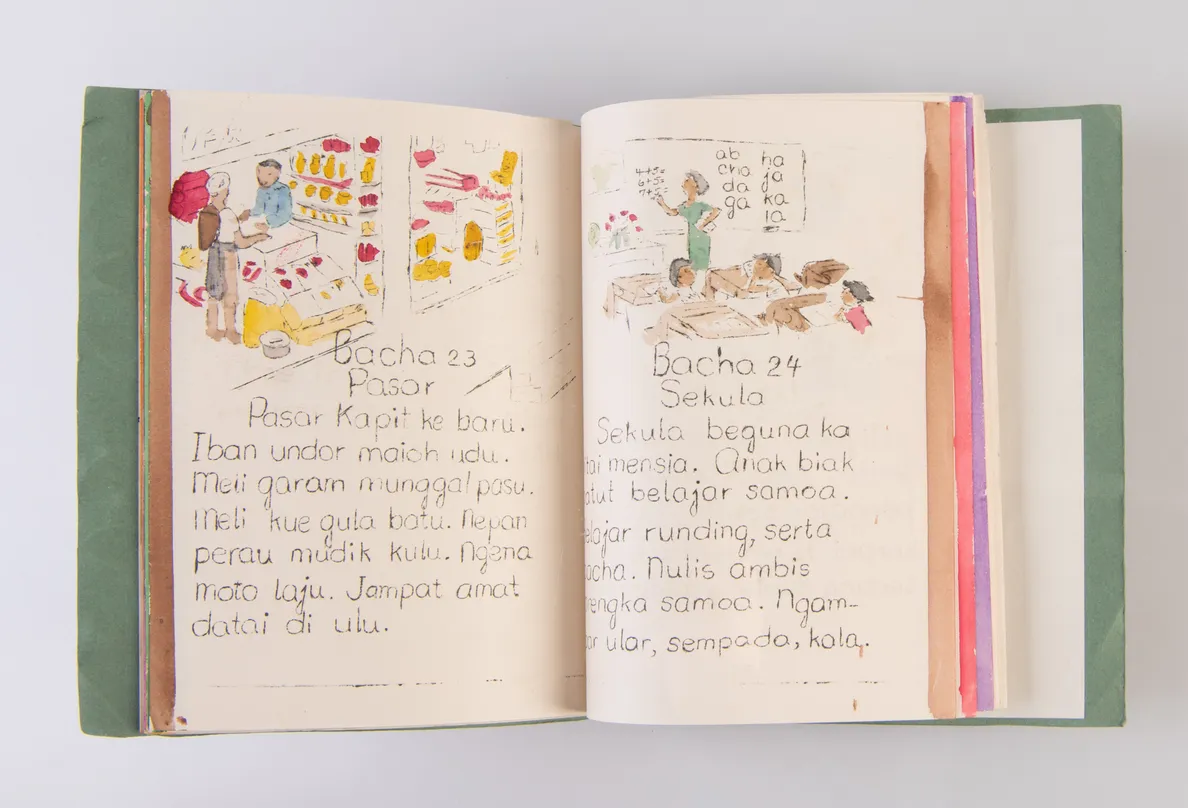 Bacha 23
Pasar
Pasar Kapit ke baru.
Iban undor maioh udu.
Meli garam munggal pasu.
Meli kue gula batu. Nepan
perau mudik kulu. Ngena
moto laju. Jampat amat
datai di ulu.
4+5=
6+5=
7+5=
ab ha
cha ja
da ka
ga la
Bacha 24
Sekula
Sekula beguna ka
mensia. Anak biak
belajar samoa.
runding, serta
Nulis ambis
samoa. Ngam-
ular, sempada, kala.